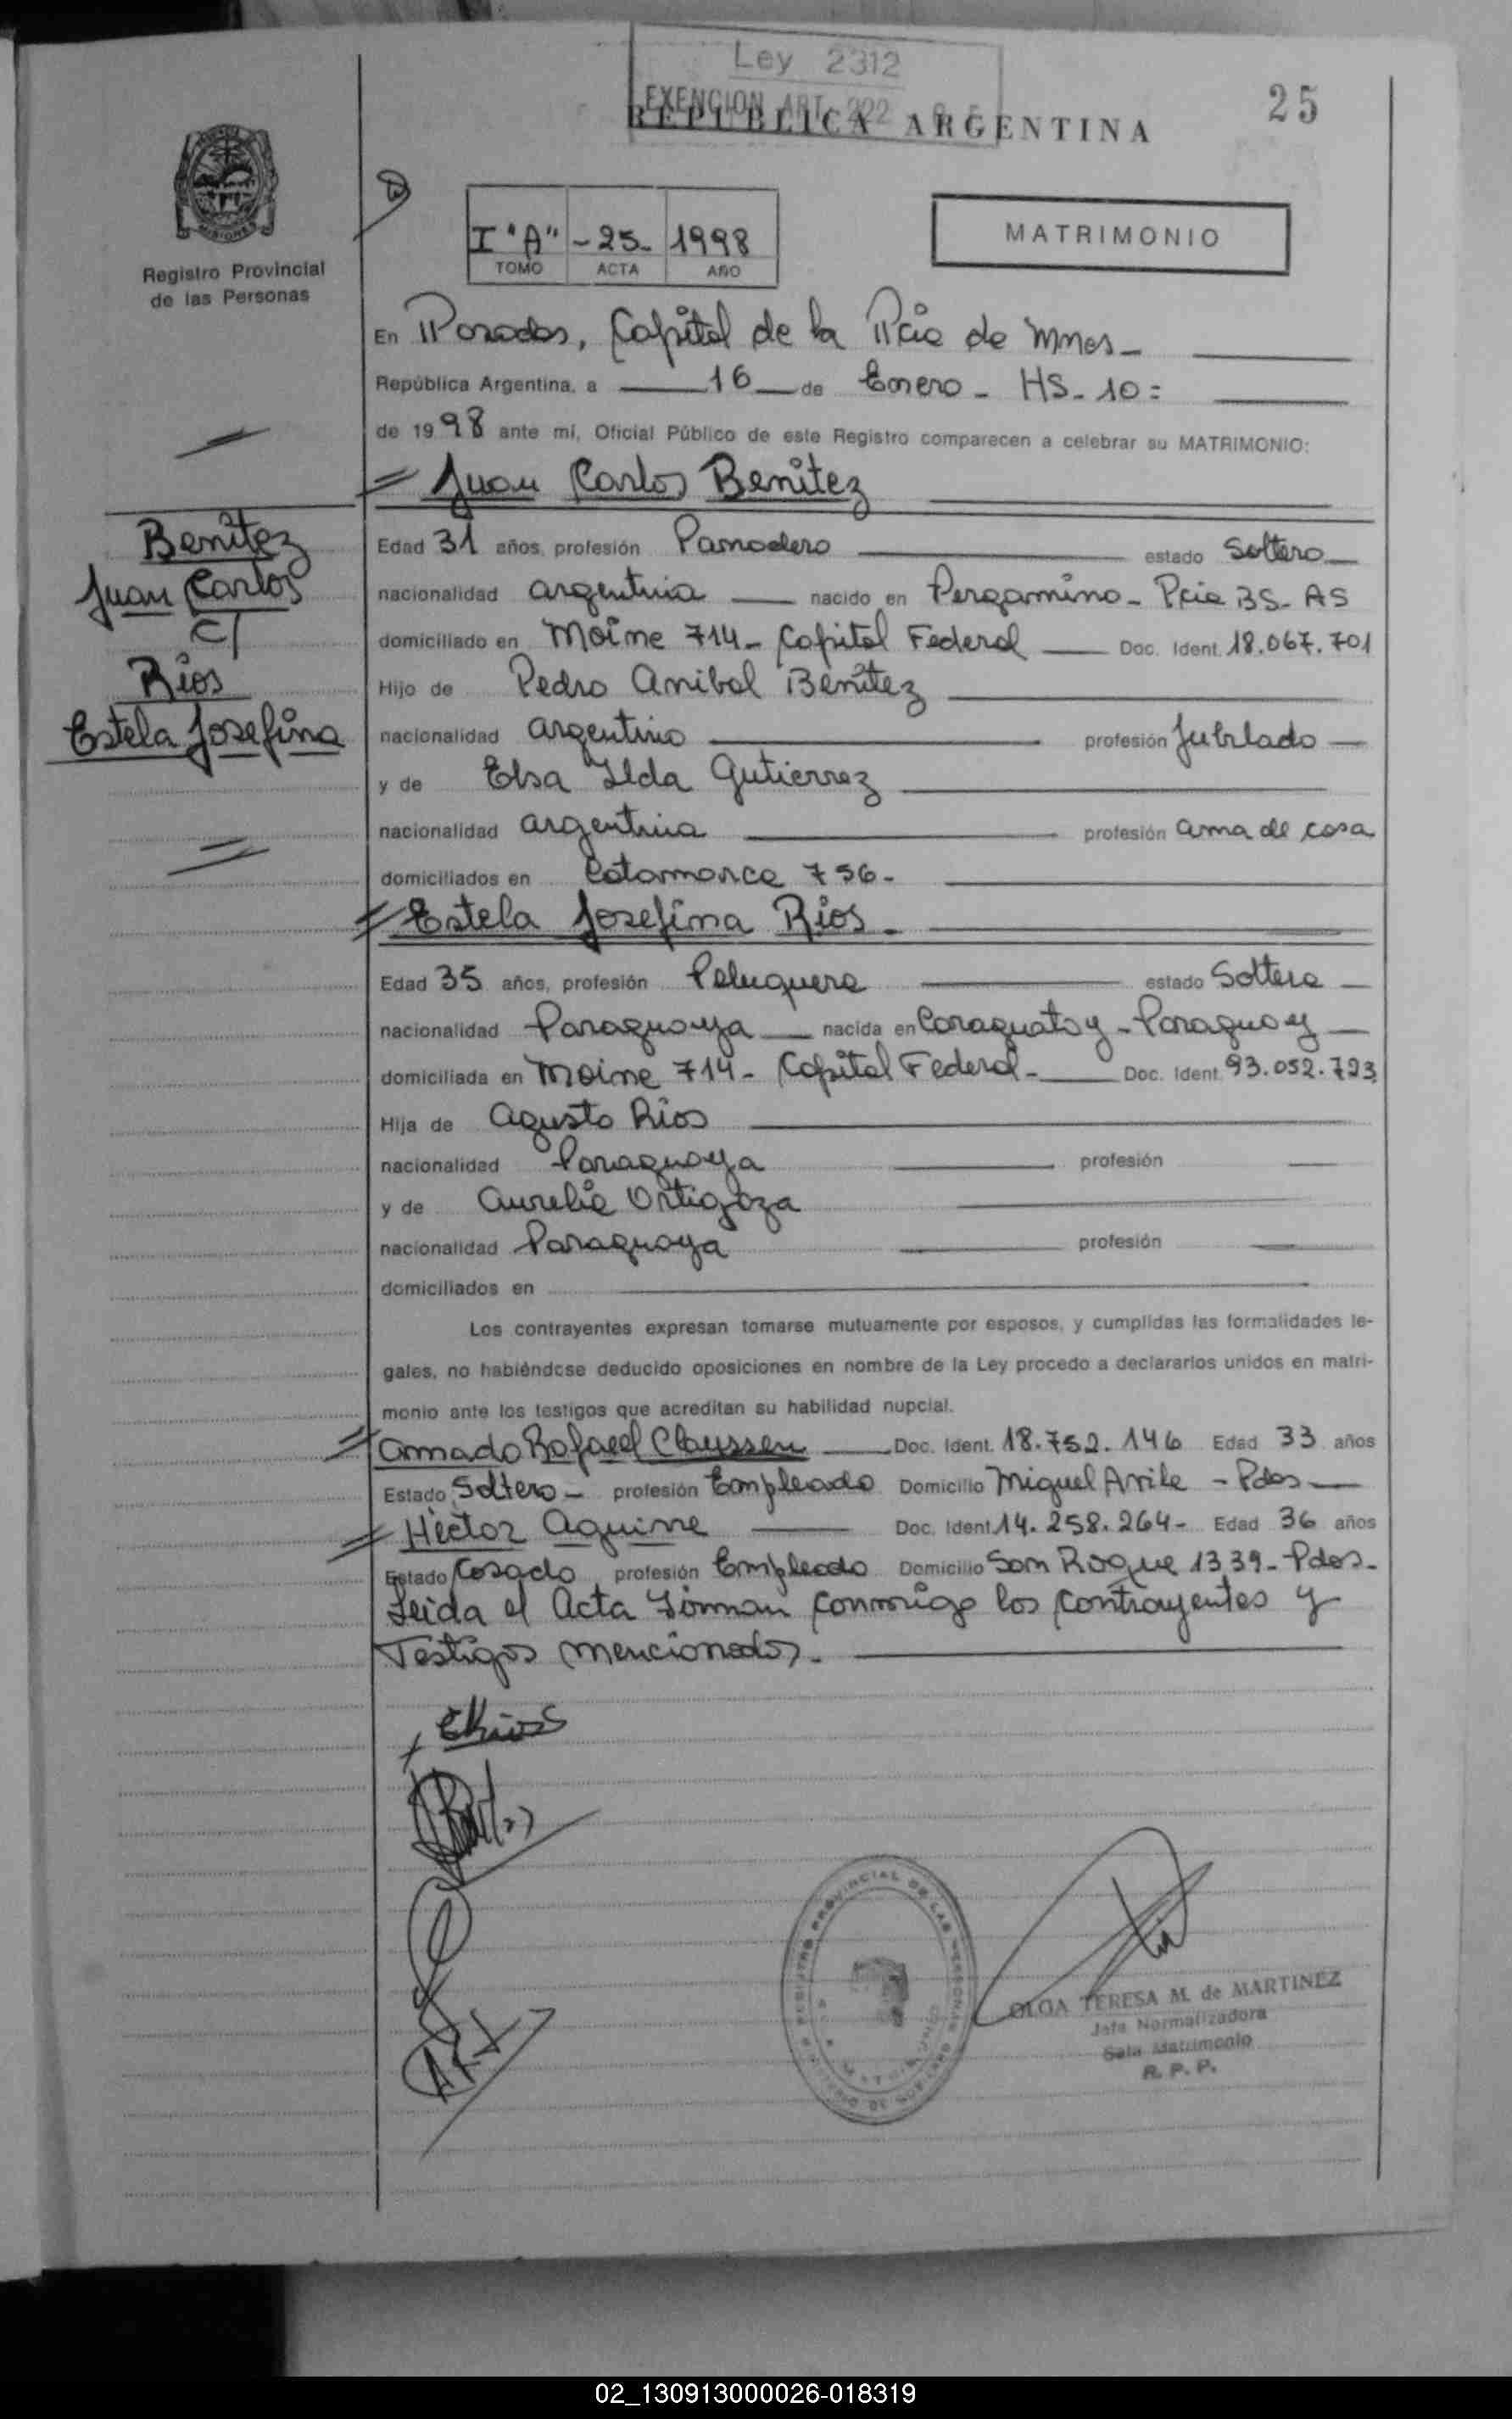 Ley 2312
EXENCION ART. 222
REPUBLICA ARGENTINA
25
MISIONES
Registro Provincial
de las Personas
I "A" - 25 - 1998
TOMO ACTA AÑO
MATRIMONIO
En Posadas, Capital de la Pcia de Mnes -
República Argentina, a 16 de Enero - HS. 10:
de 1998 ante mí, Oficial Público de este Registro comparecen a celebrar su MATRIMONIO:
Juan Carlos Benitez
Benitez
Juan Carlos
c/
Rios
Estela Josefina
Edad 31 años, profesión Panadero estado Soltero
nacionalidad argentina nacido en Pergamino - Pcia BS. AS
domiciliado en Moine 714 - Capital Federal Doc. Ident. 18.067.701
Hijo de Pedro Anibal Benitez
nacionalidad argentino profesión Jubilado
y de Elsa Ilda Gutierrez
nacionalidad argentina profesión ama de casa
domiciliados en Catamarca 756 -
Estela Josefina Rios -
Edad 35 años, profesión Peluquera estado Soltera
nacionalidad Paraguaya nacida en Caraguatay - Paraguay
domiciliada en Moine 714 - Capital Federal - Doc. Ident. 93.052.723
Hija de Agusto Rios
nacionalidad Paraguaya profesión
y de Aurelia Ortigoza
nacionalidad Paraguaya profesión
domiciliados en
Los contrayentes expresan tomarse mutuamente por esposos, y cumplidas las formalidades le-
gales, no habiéndose deducido oposiciones en nombre de la Ley procedo a declararlos unidos en matri-
monio ante los testigos que acreditan su habilidad nupcial.
Amado Rafael Claussen Doc. Ident. 18.752.146 Edad 33 años
Estado Soltero - profesión Empleado Domicilio Miguel Arrile - Pdas
Hector Aguirre Doc. Ident. 14.258.264 - Edad 36 años
Estado Casado profesión Empleado Domicilio San Roque 1339 - Pdas -
Leida el Acta Firman conmigo los contrayentes y
Testigos mencionados. -
ERios
REGISTRO PROVINCIAL DE LAS PERSONAS
OLGA TERESA M. de MARTINEZ
Jefa Normalizadora
Sala Matrimonio
R. P. P.
02_130913000026-018319